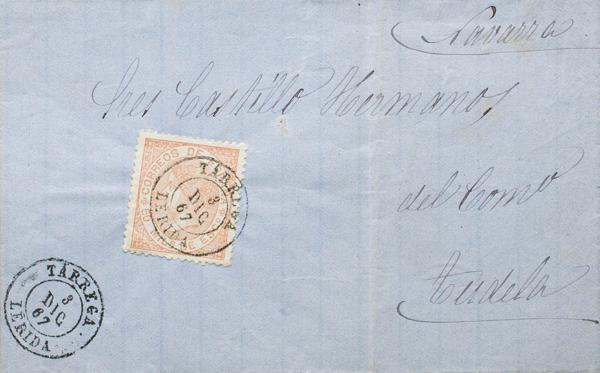 Navarra
Sres Castillo Hermanos
del Comº
Tudela
CORREOS DE
TÁRREGA
3
DIC
67
LÉRIDA
TÁRREGA.
3
DIC
67
LÉRIDA